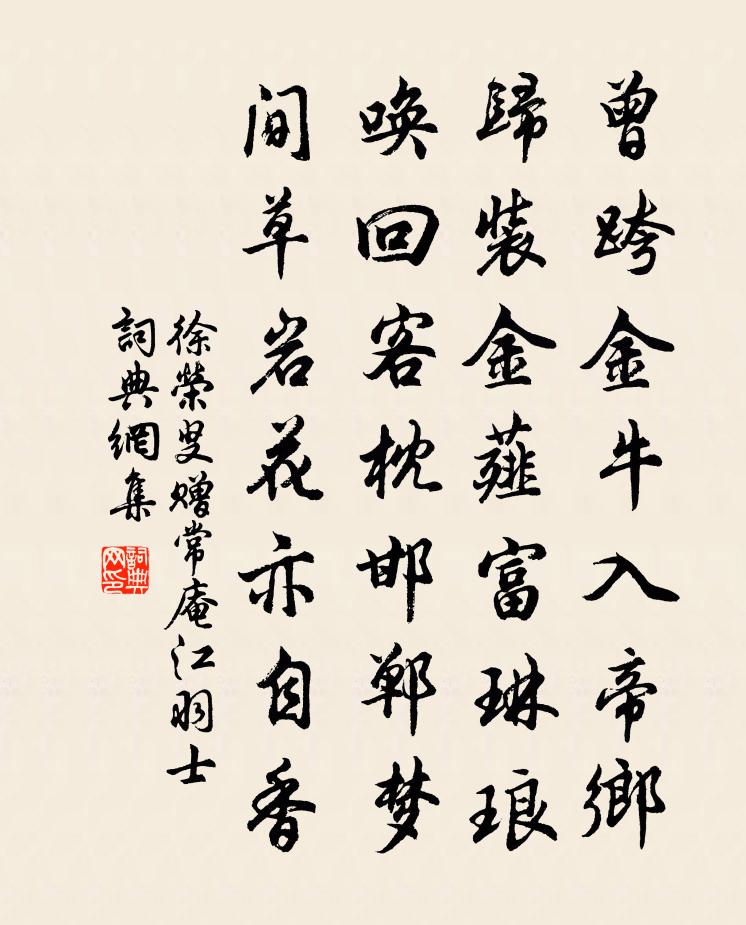 曾跨金牛入帝鄉
歸裝金薤富琳琅
喚回客枕邯鄲梦
閒草岩花亦自香
徐榮叟贈常庵江羽士
詞典網集
詞典网印